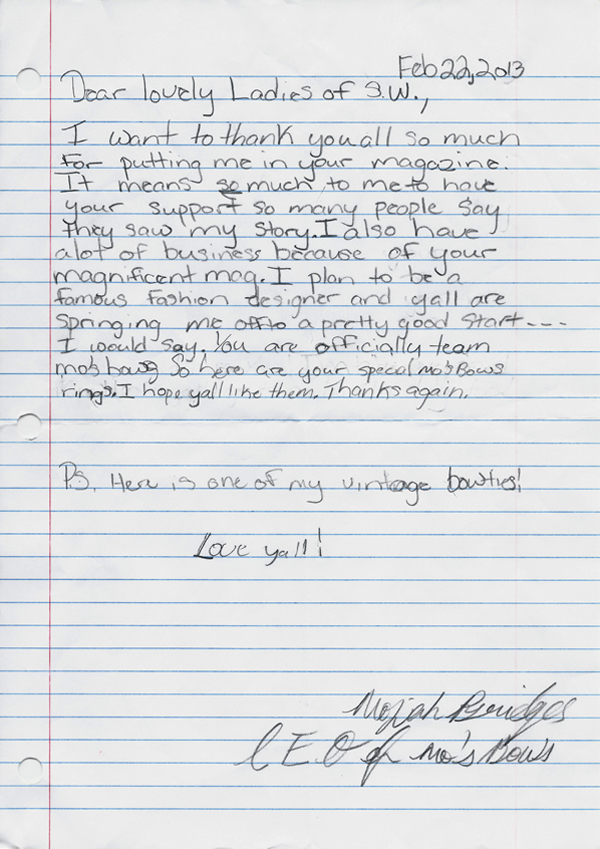 Feb 22, 2013
Dear lovely Ladies of S.W.,
I want to thank you all so much
for putting me in your magazine.
It means so much to me to have
your support so many people say
they saw my story. I also have
alot of business because of your
magnificent mag. I plan to be a
famous fashion designer and yall are
springing me off to a pretty good start---
I would say. You are officially team
mo's bows So here are your special mo's Bows
rings. I hope yall like them. Thanks again.
P.S. Here is one of my vintage bowties!
Love yall!
Moziah Bridges
CEO of Mo's Bows